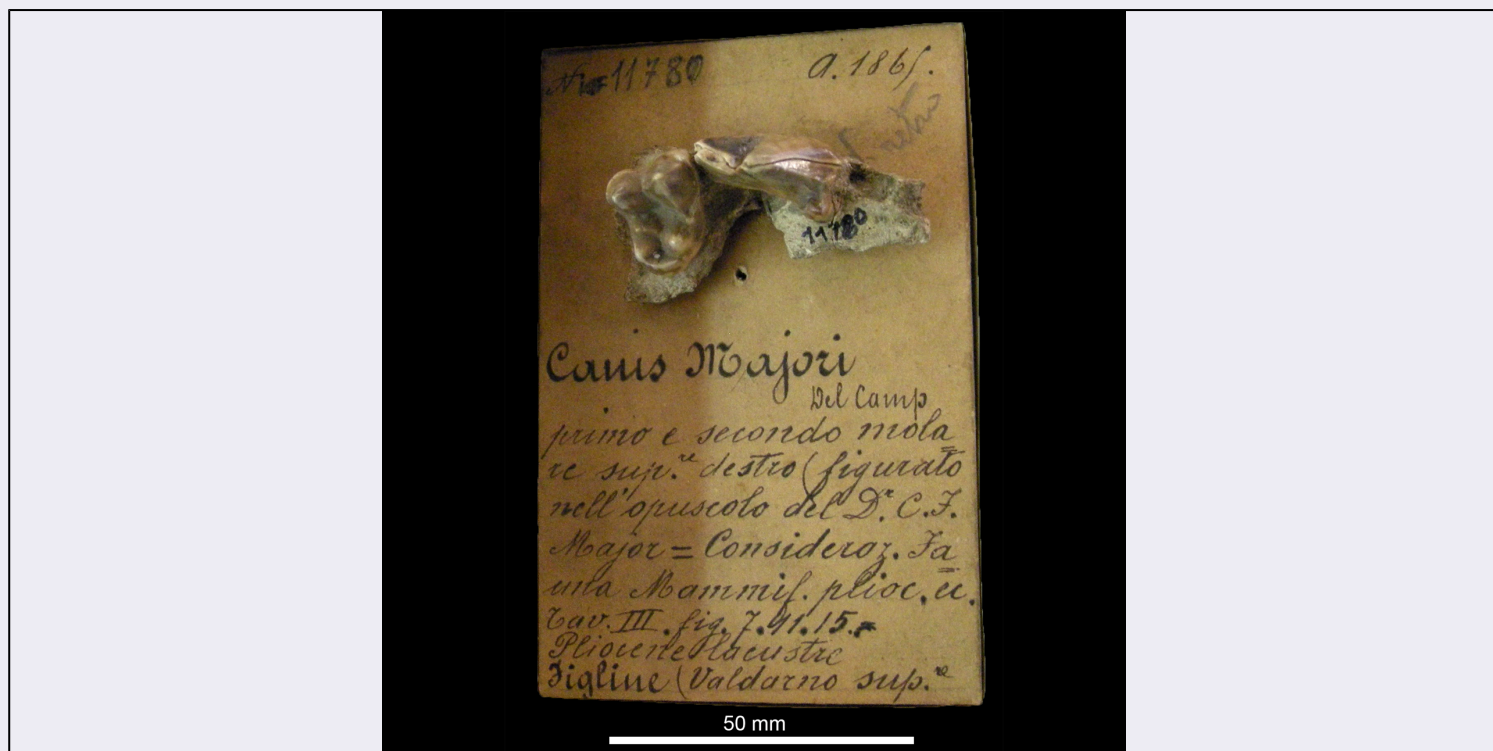 No 11780
a. 1865.
retro
11780
Canis Majori
Del Camp
primo e secondo mola
re sup.re destro (figurato
nell'opuscolo del Dr. C. F.
Major = Consideraz. Fa
una Mammif. plioc. ec.
Tav. III. fig. 7. 11. 15.=
Pliocene lacustre
Figline (Valdarno sup.re
50 mm